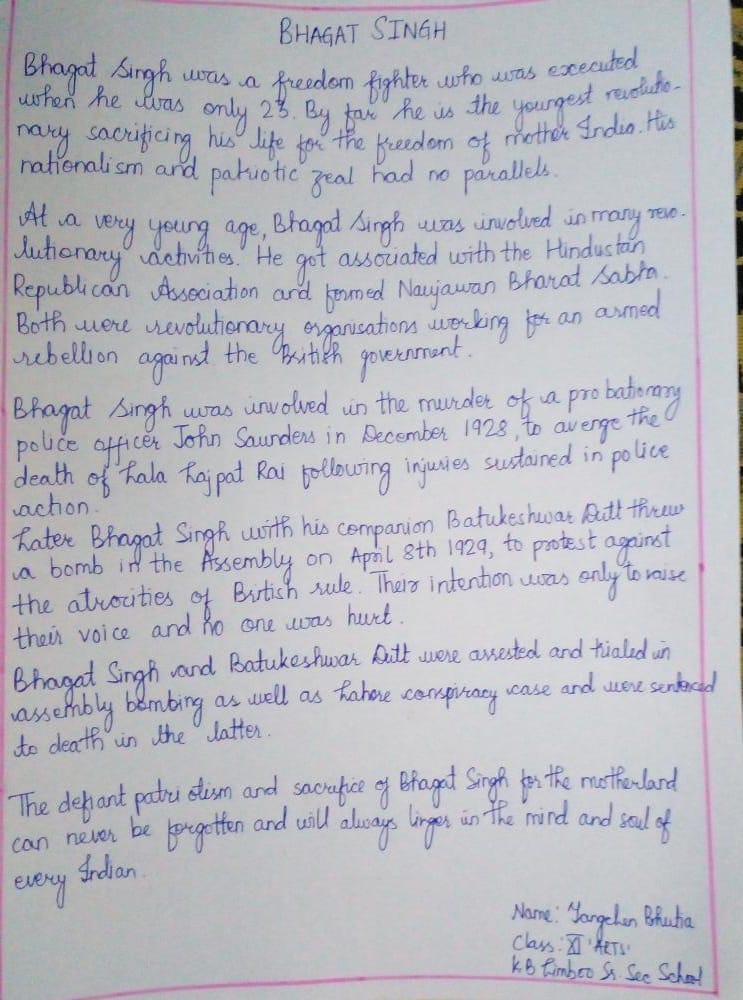 BHAGAT SINGH
Bhagat Singh was a freedom fighter who was executed
when he was only 23. By far he is the youngest revolutio-
nary sacrificing his life for the freedom of mother India. His
nationalism and patriotic zeal had no parallels.
At a very young age, Bhagat Singh was involved in many revo-
lutionary activities. He got associated with the Hindustan
Republican Association and formed Naujawan Bharat Sabha.
Both were revolutionary organisations working for an armed
rebellion against the British government.
Bhagat Singh was involved in the murder of a probationary
police officer John Saunders in December 1928, to avenge the
death of Lala Lajpat Rai following injuries sustained in police
action.
Later Bhagat Singh with his companion Batukeshwar Dutt threw
a bomb in the Assembly on April 8th 1929, to protest against
the atrocities of British rule. Their intention was only to raise
their voice and no one was hurt.
Bhagat Singh and Batukeshwar Dutt were arrested and trialed in
assembly bombing as well as Lahore conspiracy case and were sentenced
to death in the latter.
The defiant patriotism and sacrifice of Bhagat Singh for the motherland
can never be forgotten and will always linger in the mind and soul of
every Indian.
Name: Yangchen Bhutia
Class: XI 'ARTS'
K.B Limboo Sr. Sec School